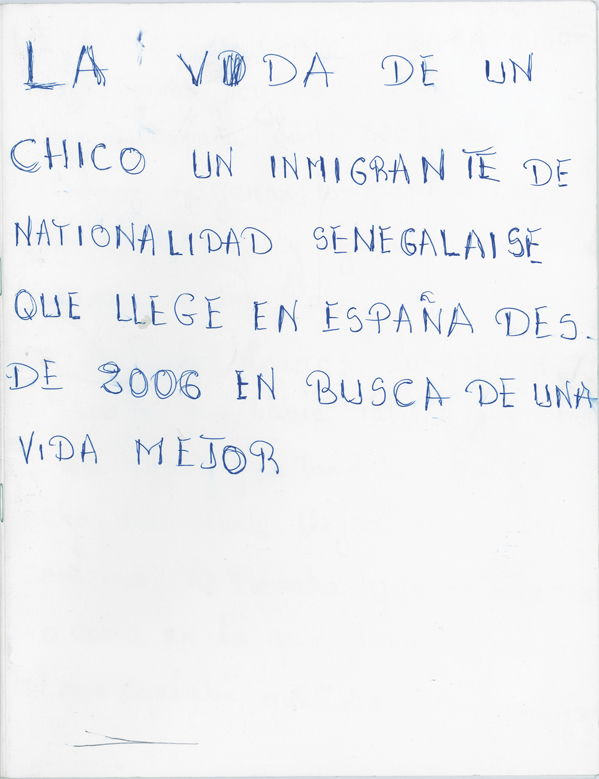 LA VIDA DE UN
CHICO UN INMIGRANTE DE
NATIONALIDAD SENEGALAISE
QUE LLEGE EN ESPAÑA DES.
DE 2006 EN BUSCA DE UNA
VIDA MEJOR